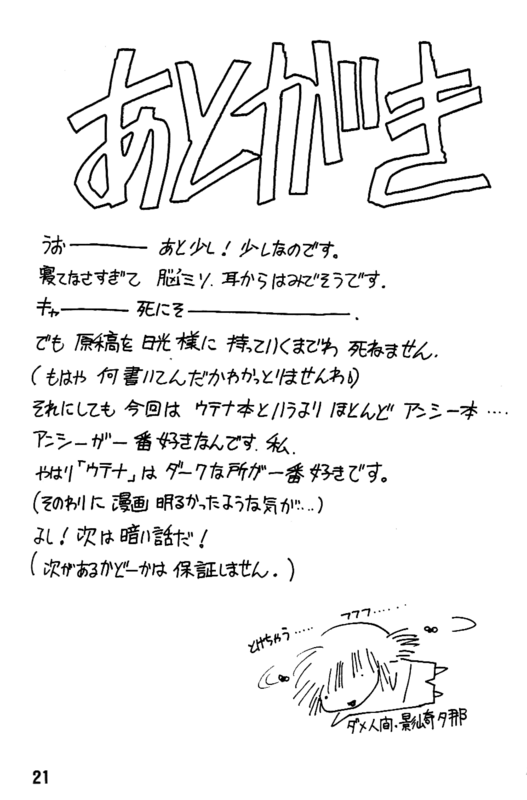 あとがき
うお──── あと少し！少しなのです。
寝てなさすぎて 脳ミソ、耳からはみでそうです.
キャ──── 死にそ────────.
でも 原稿を 日光様に 持っていくまでわ 死ねません.
(もはや 何書いてんだかわかっとりませんわ)
それにしても 今回は ウテナ本というより ほとんど アンシー本‥‥
アンシーが一番好きなんです. 私.
やはり「ウテナ」は ダークな所が一番 好きです。
(そのわりに 漫画 明るかったような気が‥‥)
よし！次は 暗い話だ！
(次があるかどーかは 保証しません.)
フフフ‥‥‥
とけちゃう‥‥‥
ダメ人間・影崎夕那
21